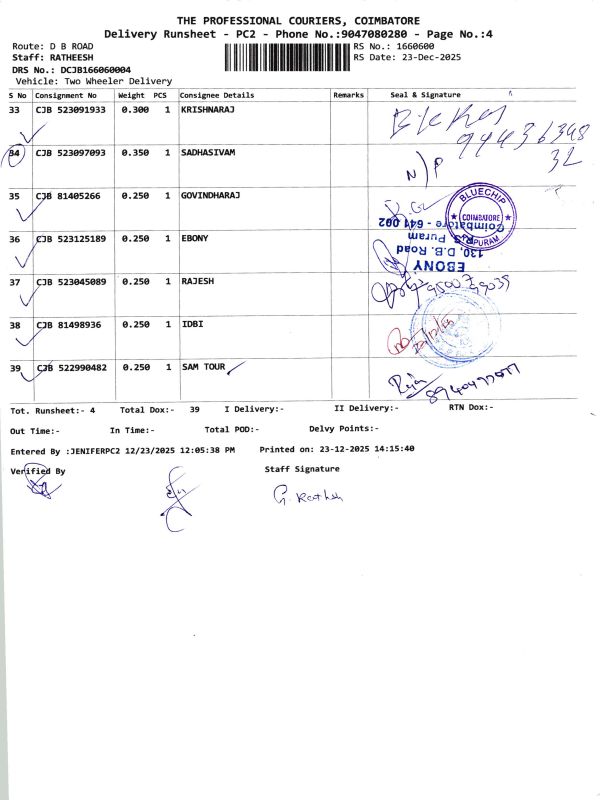 THE PROFESSIONAL COURIERS, COIMBATORE
Delivery Runsheet - PC2 - Phone No.:9047080280 - Page No.:4
Route: D B ROAD RS No.: 1660600
Staff: RATHEESH RS Date: 23-Dec-2025
DRS No.: DCJB166060004
Vehicle: Two Wheeler Delivery
S No Consignment No Weight PCS Consignee Details Remarks Seal & Signature
33 CJB 523091933 0.300 1 KRISHNARAJ
9443634832
34 CJB 523097093 0.350 1 SADHASIVAM N/P
35 CJB 81405266 0.250 1 GOVINDHARAJ
BLUECHIP
COIMBATORE
R.S.PURAM
36 CJB 523125189 0.250 1 EBONY
EBONY
130, D.B. Road
R.S. Puram
Coimbatore - 641 002
37 CJB 523045089 0.250 1 RAJESH
38 CJB 81498936 0.250 1 IDBI
39 CJB 522990482 0.250 1 SAM TOUR
Tot. Runsheet:- 4 Total Dox:- 39 I Delivery:- II Delivery:- RTN Dox:-
Out Time:- In Time:- Total POD:- Delvy Points:-
Entered By :JENIFERPC2 12/23/2025 12:05:38 PM Printed on: 23-12-2025 14:15:40
Verified By Staff Signature